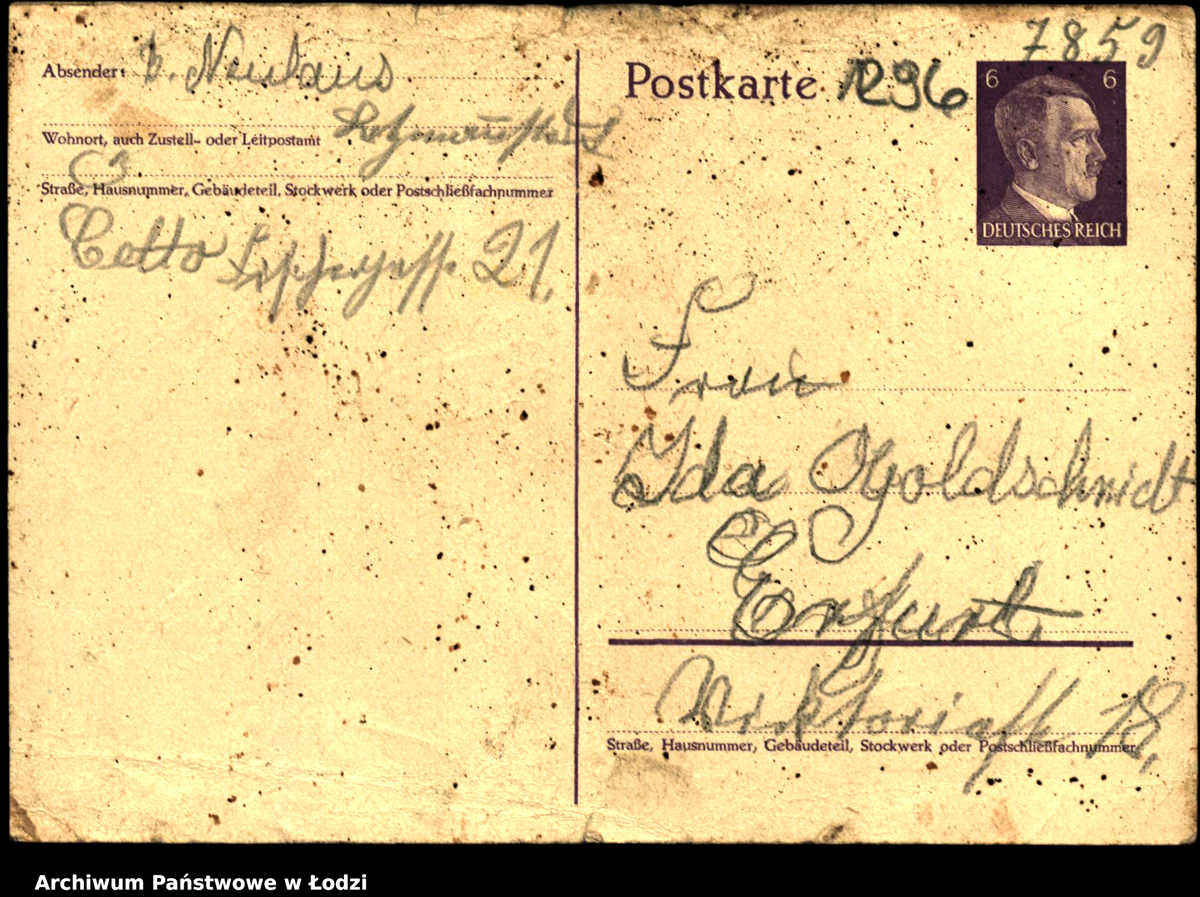 7859
Absender: v. Neuhaus
Wohnort, auch Zustell- oder Leitpostamt
Straße, Hausnummer, Gebäudeteil, Stockwerk oder Postschließfachnummer
Getto 21.
Postkarte 1296
6 6
DEUTSCHES REICH
Frau
Ida Goldschmidt
Erfurt
Viktoriastr 18,
Straße, Hausnummer, Gebäudeteil, Stockwerk oder Postschließfachnummer
Archiwum Państwowe w Łodzi